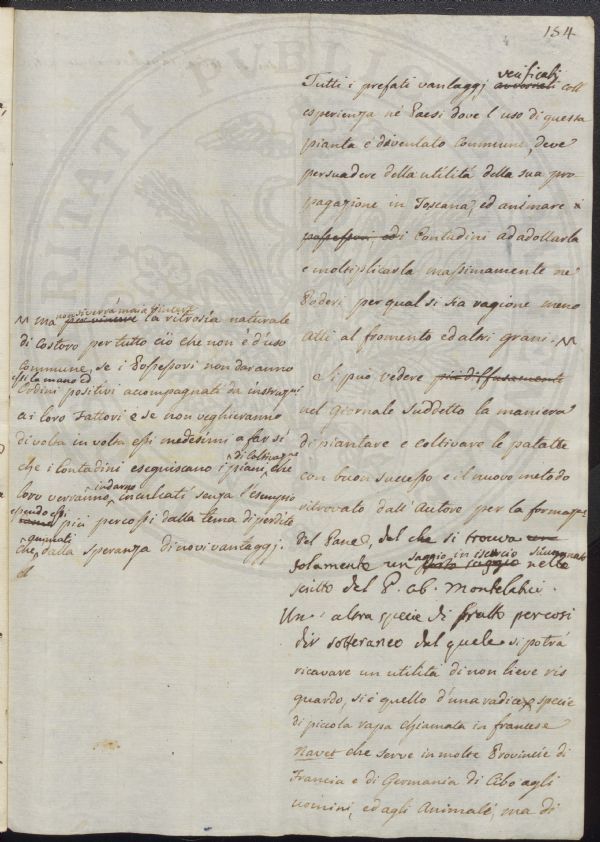 184
Tutti i prefati vantaggj verificati coll
esperienza né Paesi dove l'uso di questa
pianta é diventato Commune, deve
persuadere della utilitá della sua pro-
pagazione in Toscana, ed animare
possessori ed i Contadini ad adottarla
e moltiplicarla massimamente ne
Poderi per qual si sia ragione meno
Atti al fromento ed altri grani.
Si può vedere piú diffusamente
nel giornale suddetto la maniera
di piantare e coltivare le patatte
con buon successo e il nuovo metodo
ritrovato dall'Autore per la formaz:e
del Pane, del che si trova
solamente un saggio in nello
scritto del P. ab. Montelatici.
Un' altra specie di frutto per cosi
dir sotteraneo del quale si potrá
ricavare un utilitá di non lieve ris
guardo, si é quello d'una radice specie
di piccola rapa chiamata in francese
Navet che serve in molte Provincie di
Francia e di Germania di Cibo agli
uomini, ed agli Animali, ma di
ma non si verrá mai a vincere
per vincere la ritrosía naturale
di Costoro per tutto ciò che non é d'uso
Commune, se i Possessori non daranno
essi la mano ed
Ordini positivi accompagnati da
ai loro Fattori e se non veghieranno
di volta in volta essi medesimi a far sí
che i Contadini eseguiscano i piani, che
loro verranno indarno inculcati senza l'esempio
essendo essi
piú percossi dalla tema di perdite
che dalla speranza di nuovi vantaggj.